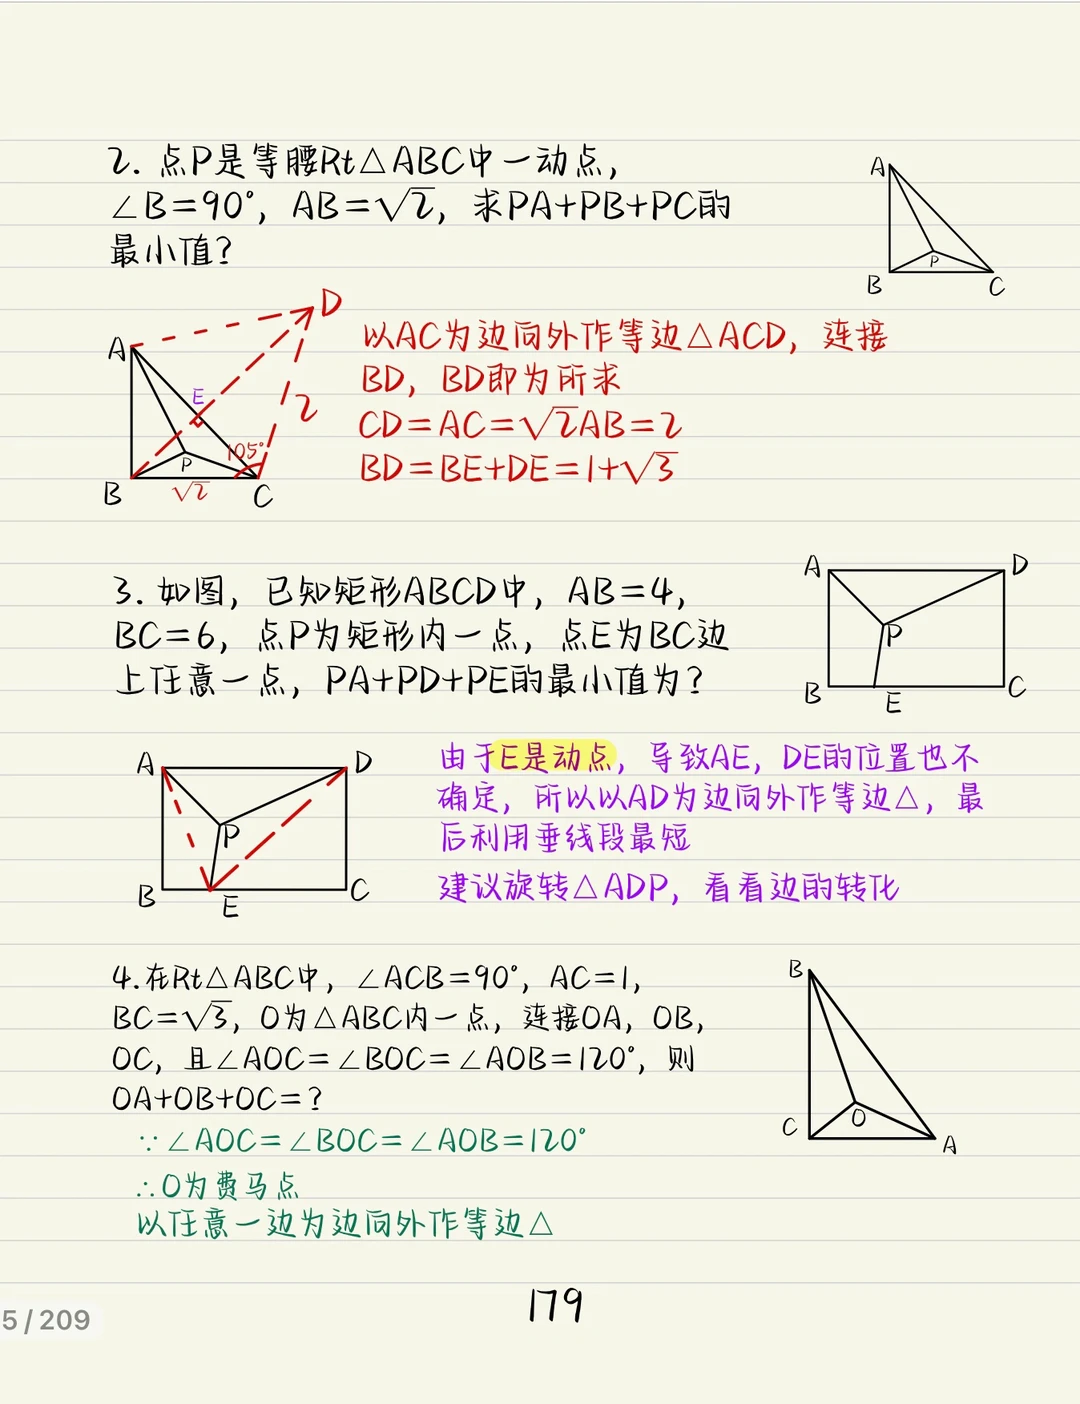 2. 点P是等腰Rt△ABC中一动点,
∠B=90°, AB=√2, 求PA+PB+PC的
最小值?
A
P
B
C
D
A
E
2
105°
P
B
√2
C
以AC为边向外作等边△ACD, 连接
BD, BD即为所求
CD=AC=√2AB=2
BD=BE+DE=1+√3
3. 如图, 已知矩形ABCD中, AB=4,
BC=6, 点P为矩形内一点, 点E为BC边
上任意一点, PA+PD+PE的最小值为?
A
D
P
B
E
C
A
D
P
B
E
C
由于E是动点, 导致AE, DE的位置也不
确定, 所以以AD为边向外作等边△, 最
后利用垂线段最短
建议旋转△ADP, 看看边的转化
4.在Rt△ABC中, ∠ACB=90°, AC=1,
BC=√3, O为△ABC内一点, 连接OA, OB,
OC, 且∠AOC=∠BOC=∠AOB=120°, 则
OA+OB+OC=?
B
O
C
A
∵∠AOC=∠BOC=∠AOB=120°
∴O为费马点
以任意一边为边向外作等边△
179
5/209